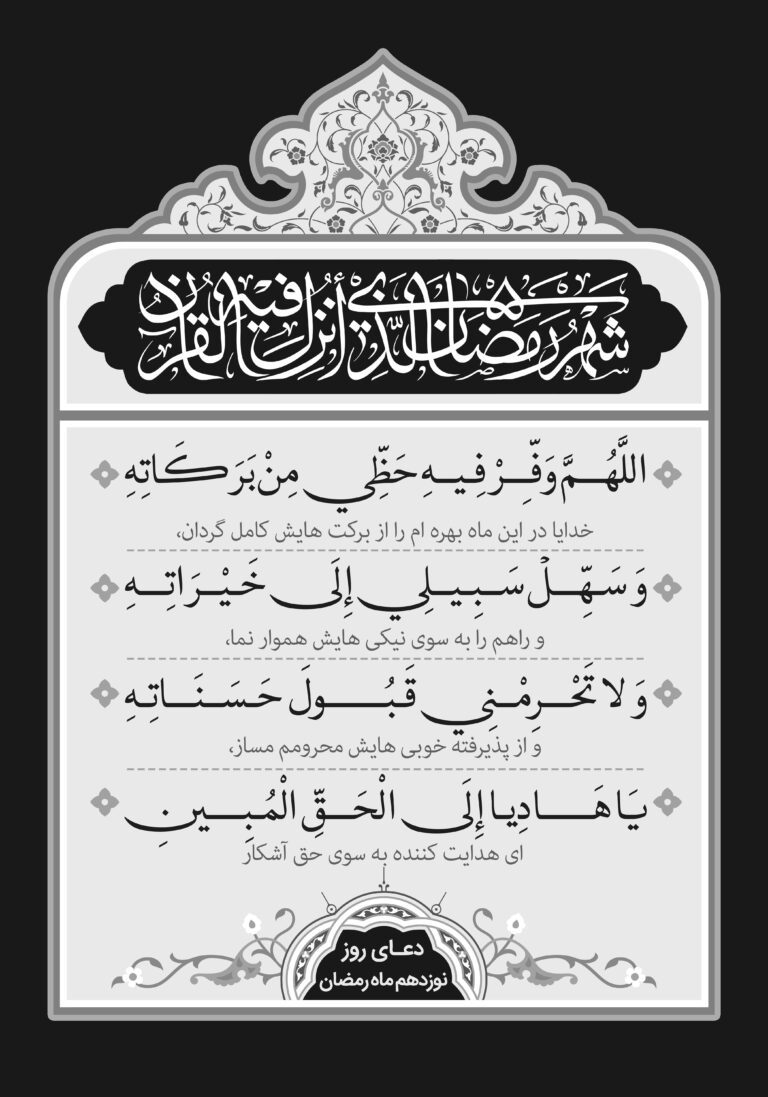 شَهْرُ رَمَضَانَ الَّذِي أُنْزِلَ فِيهِ الْقُرْآنُ
اللَّهُمَّ وَفِّرْ فِيهِ حَظِّي مِنْ بَرَكَاتِهِ
خدایا در این ماه بهره ام را از برکت هایش کامل گردان،
وَ سَهِّلْ سَبِيلِي إِلَى خَيْرَاتِهِ
و راهم را به سوی نیکی هایش هموار نما،
وَ لا تَحْرِمْنِي قَبُولَ حَسَنَاتِهِ
و از پذیرفته خوبی هایش محرومم مساز،
يَا هَادِيا إِلَى الْحَقِّ الْمُبِينِ
ای هدایت کننده به سوی حق آشکار
دعای روز
نوزدهم ماه رمضان